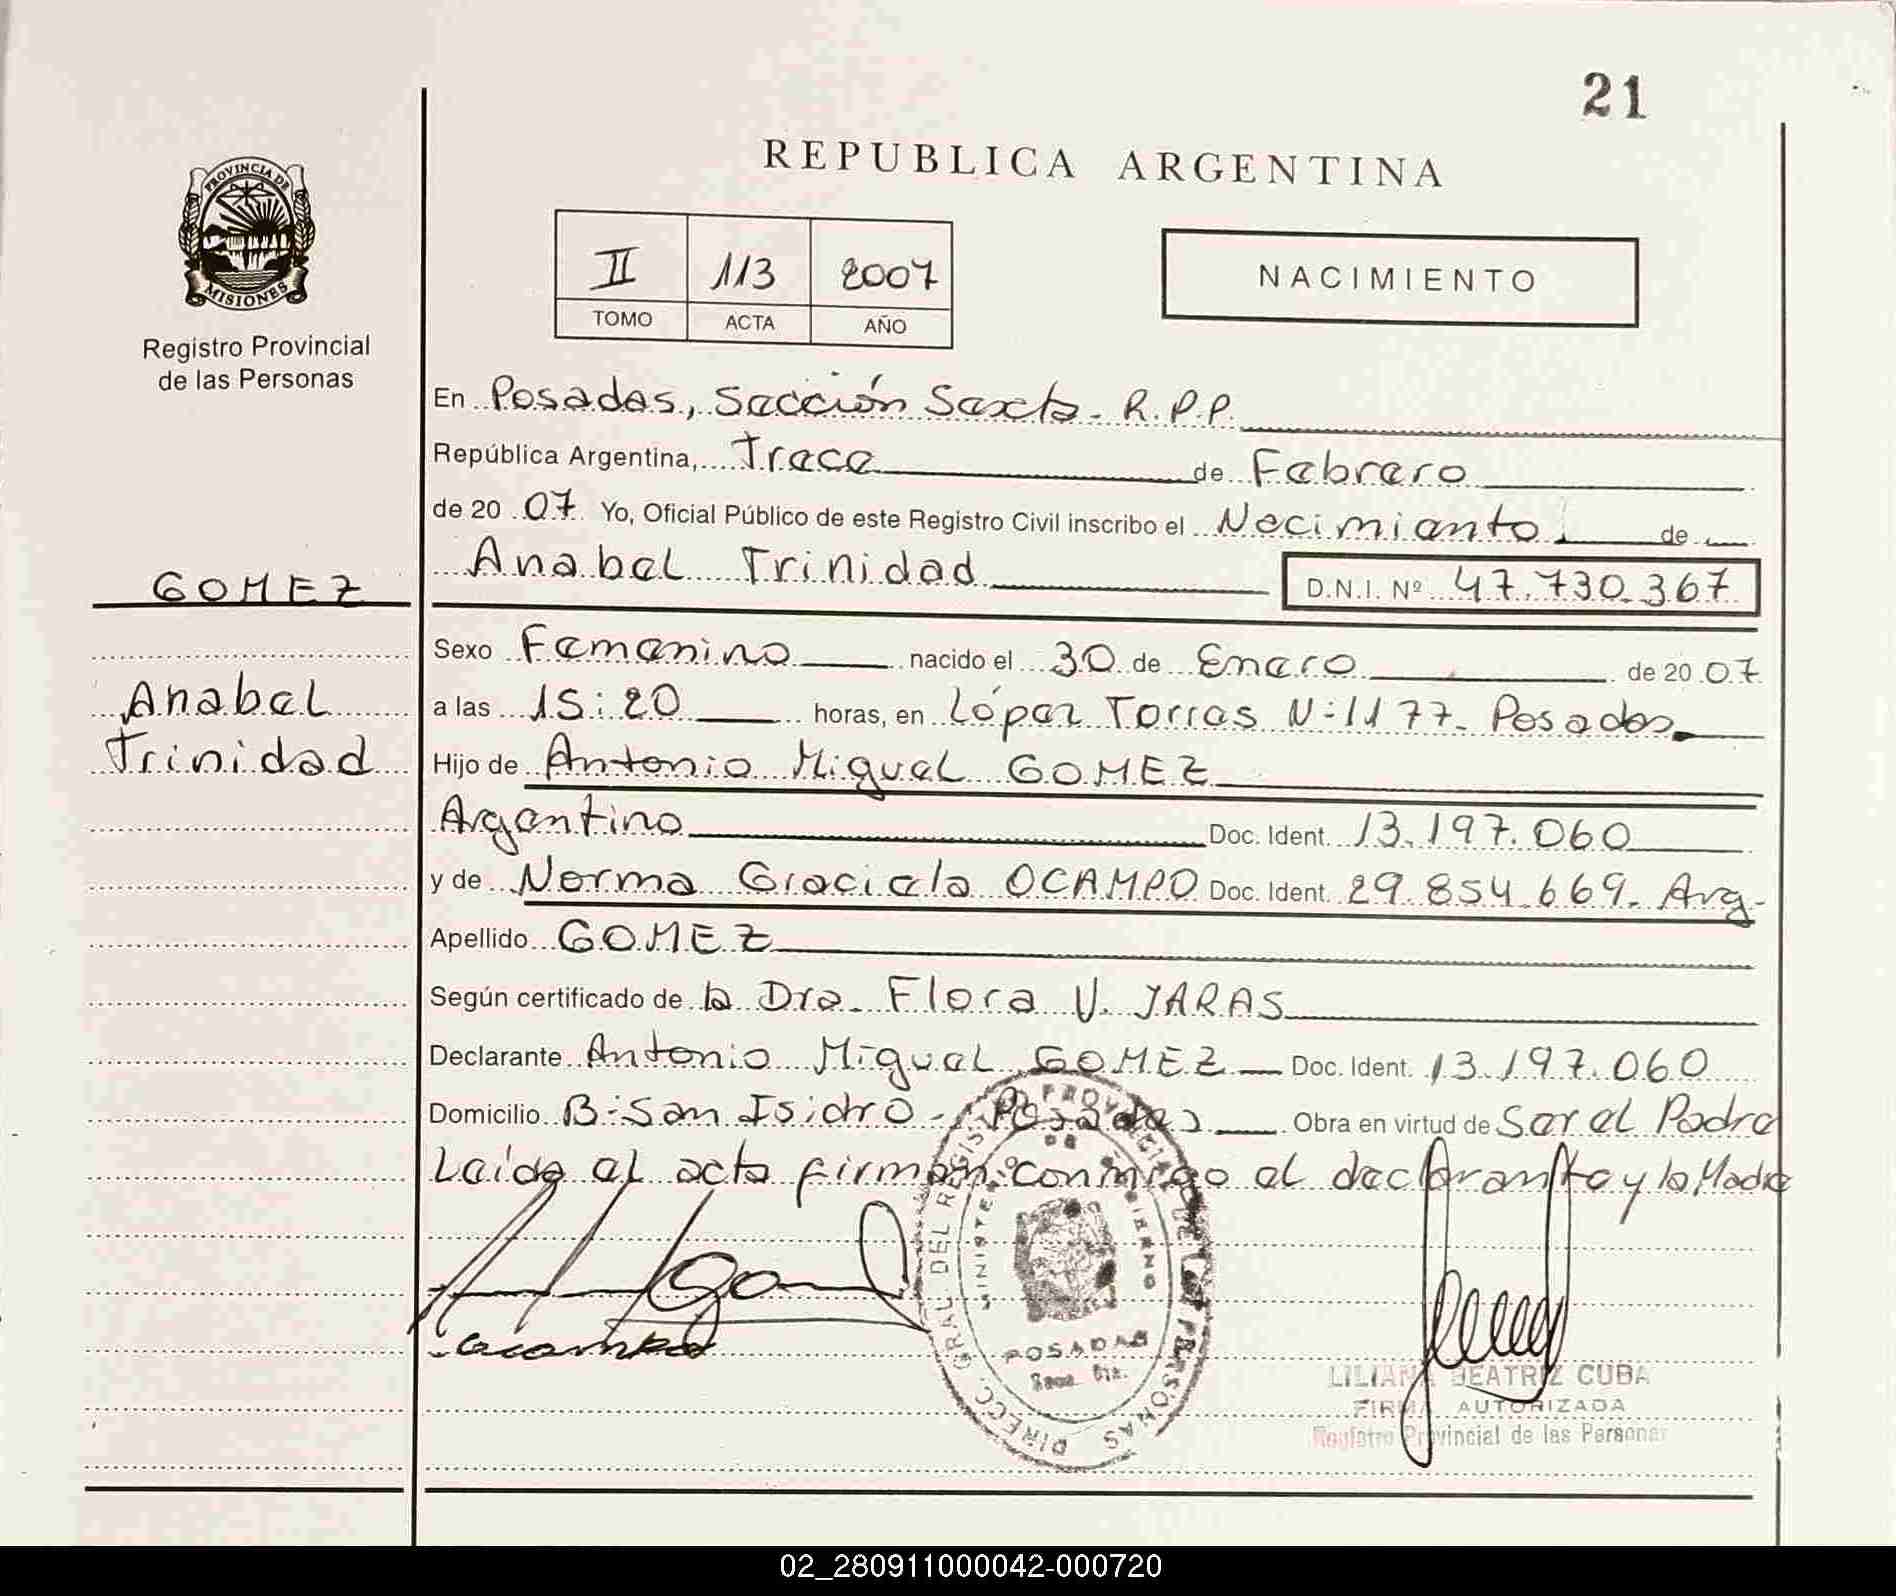 21
REPUBLICA ARGENTINA
PROVINCIA DE
MISIONES
Registro Provincial
de las Personas
II 113 2007
TOMO ACTA AÑO
NACIMIENTO
En Posadas, Sección Sexta - R.P.P.
República Argentina, Trece de Febrero
de 20 07 Yo, Oficial Público de este Registro Civil inscribo el Nacimiento de
Anabel Trinidad D.N.I. Nº 47.730.367
GOMEZ
Anabel
Trinidad
Sexo Femenino nacido el 30 de Enero de 20 07
a las 15:20 horas, en López Torres Nº 1177 - Posadas
Hijo de Antonio Miguel GOMEZ
Argentino Doc. Ident. 13.197.060
y de Norma Graciela OCAMPO Doc. Ident. 29.854.669. Arg-
Apellido GOMEZ
Según certificado de la Dra. Flora V. JARAS
Declarante Antonio Miguel GOMEZ Doc. Ident. 13.197.060
Domicilio Bº San Isidro - Posadas Obra en virtud de Ser el Padre
Leída el acta firman conmigo el declarante y la Madre
DIRECC. GRAL DEL REGISTRO PROVINCIAL DE LAS PERSONAS
MINISTERIO DE GOBIERNO
POSADAS
LILIANA BEATRIZ CUBA
FIRMA AUTORIZADA
Registro Provincial de las Personas
02_280911000042-000720